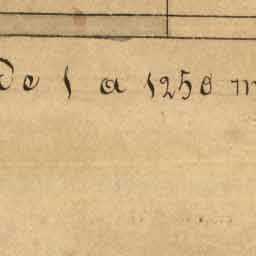 de 1 a 1250 m